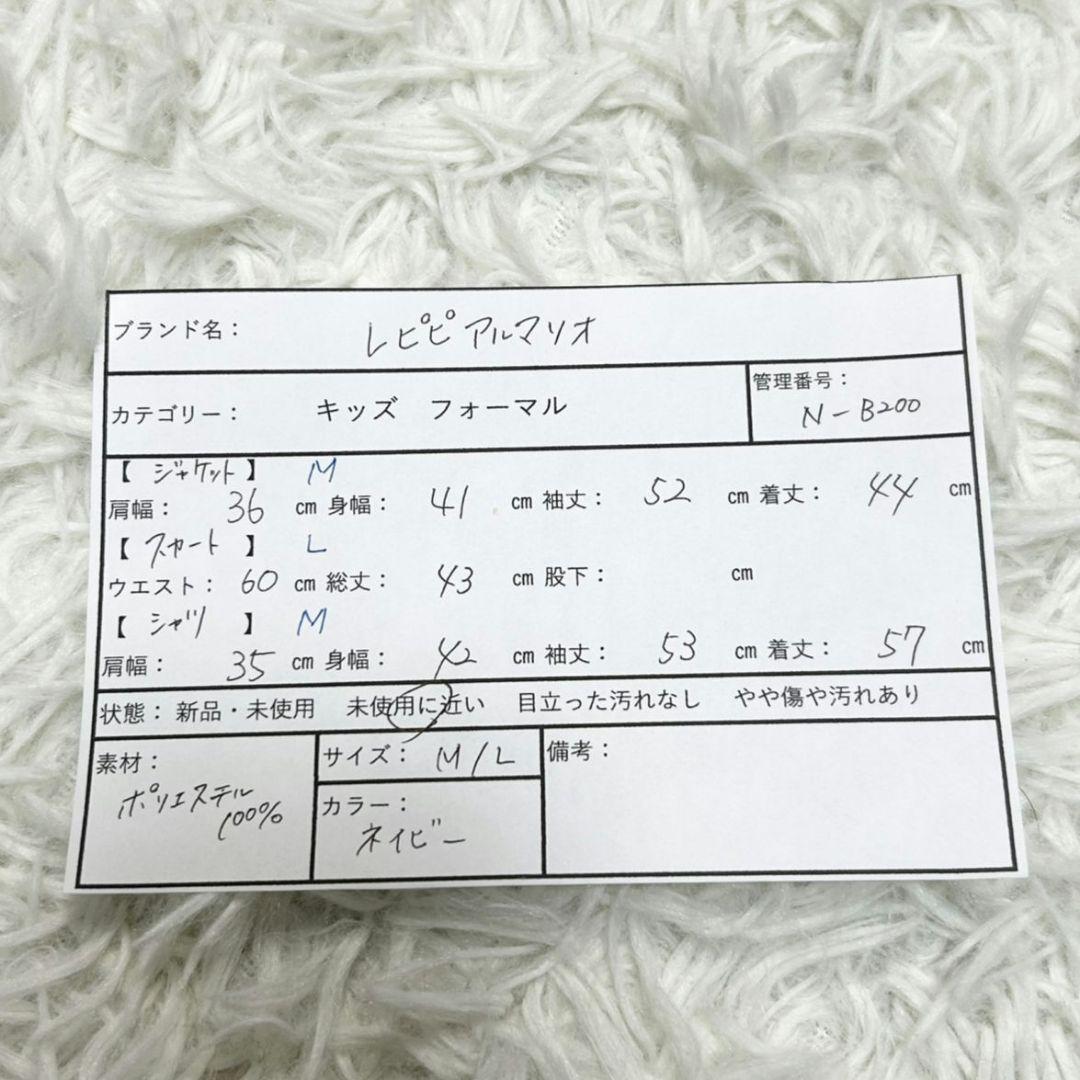 ブランド名： レピピアルマリオ
カテゴリー： キッズ フォーマル
管理番号：
N-B200
【 ジャケット 】 M
肩幅： 36 cm 身幅： 41 cm 袖丈： 52 cm 着丈： 44 cm
【 スカート 】 L
ウエスト： 60 cm 総丈： 43 cm 股下： cm
【 シャツ 】 M
肩幅： 35 cm 身幅： 42 cm 袖丈： 53 cm 着丈： 57 cm
状態： 新品・未使用 未使用に近い 目立った汚れなし やや傷や汚れあり
素材：
ポリエステル
100%
サイズ： M/L
カラー：
ネイビー
備考：